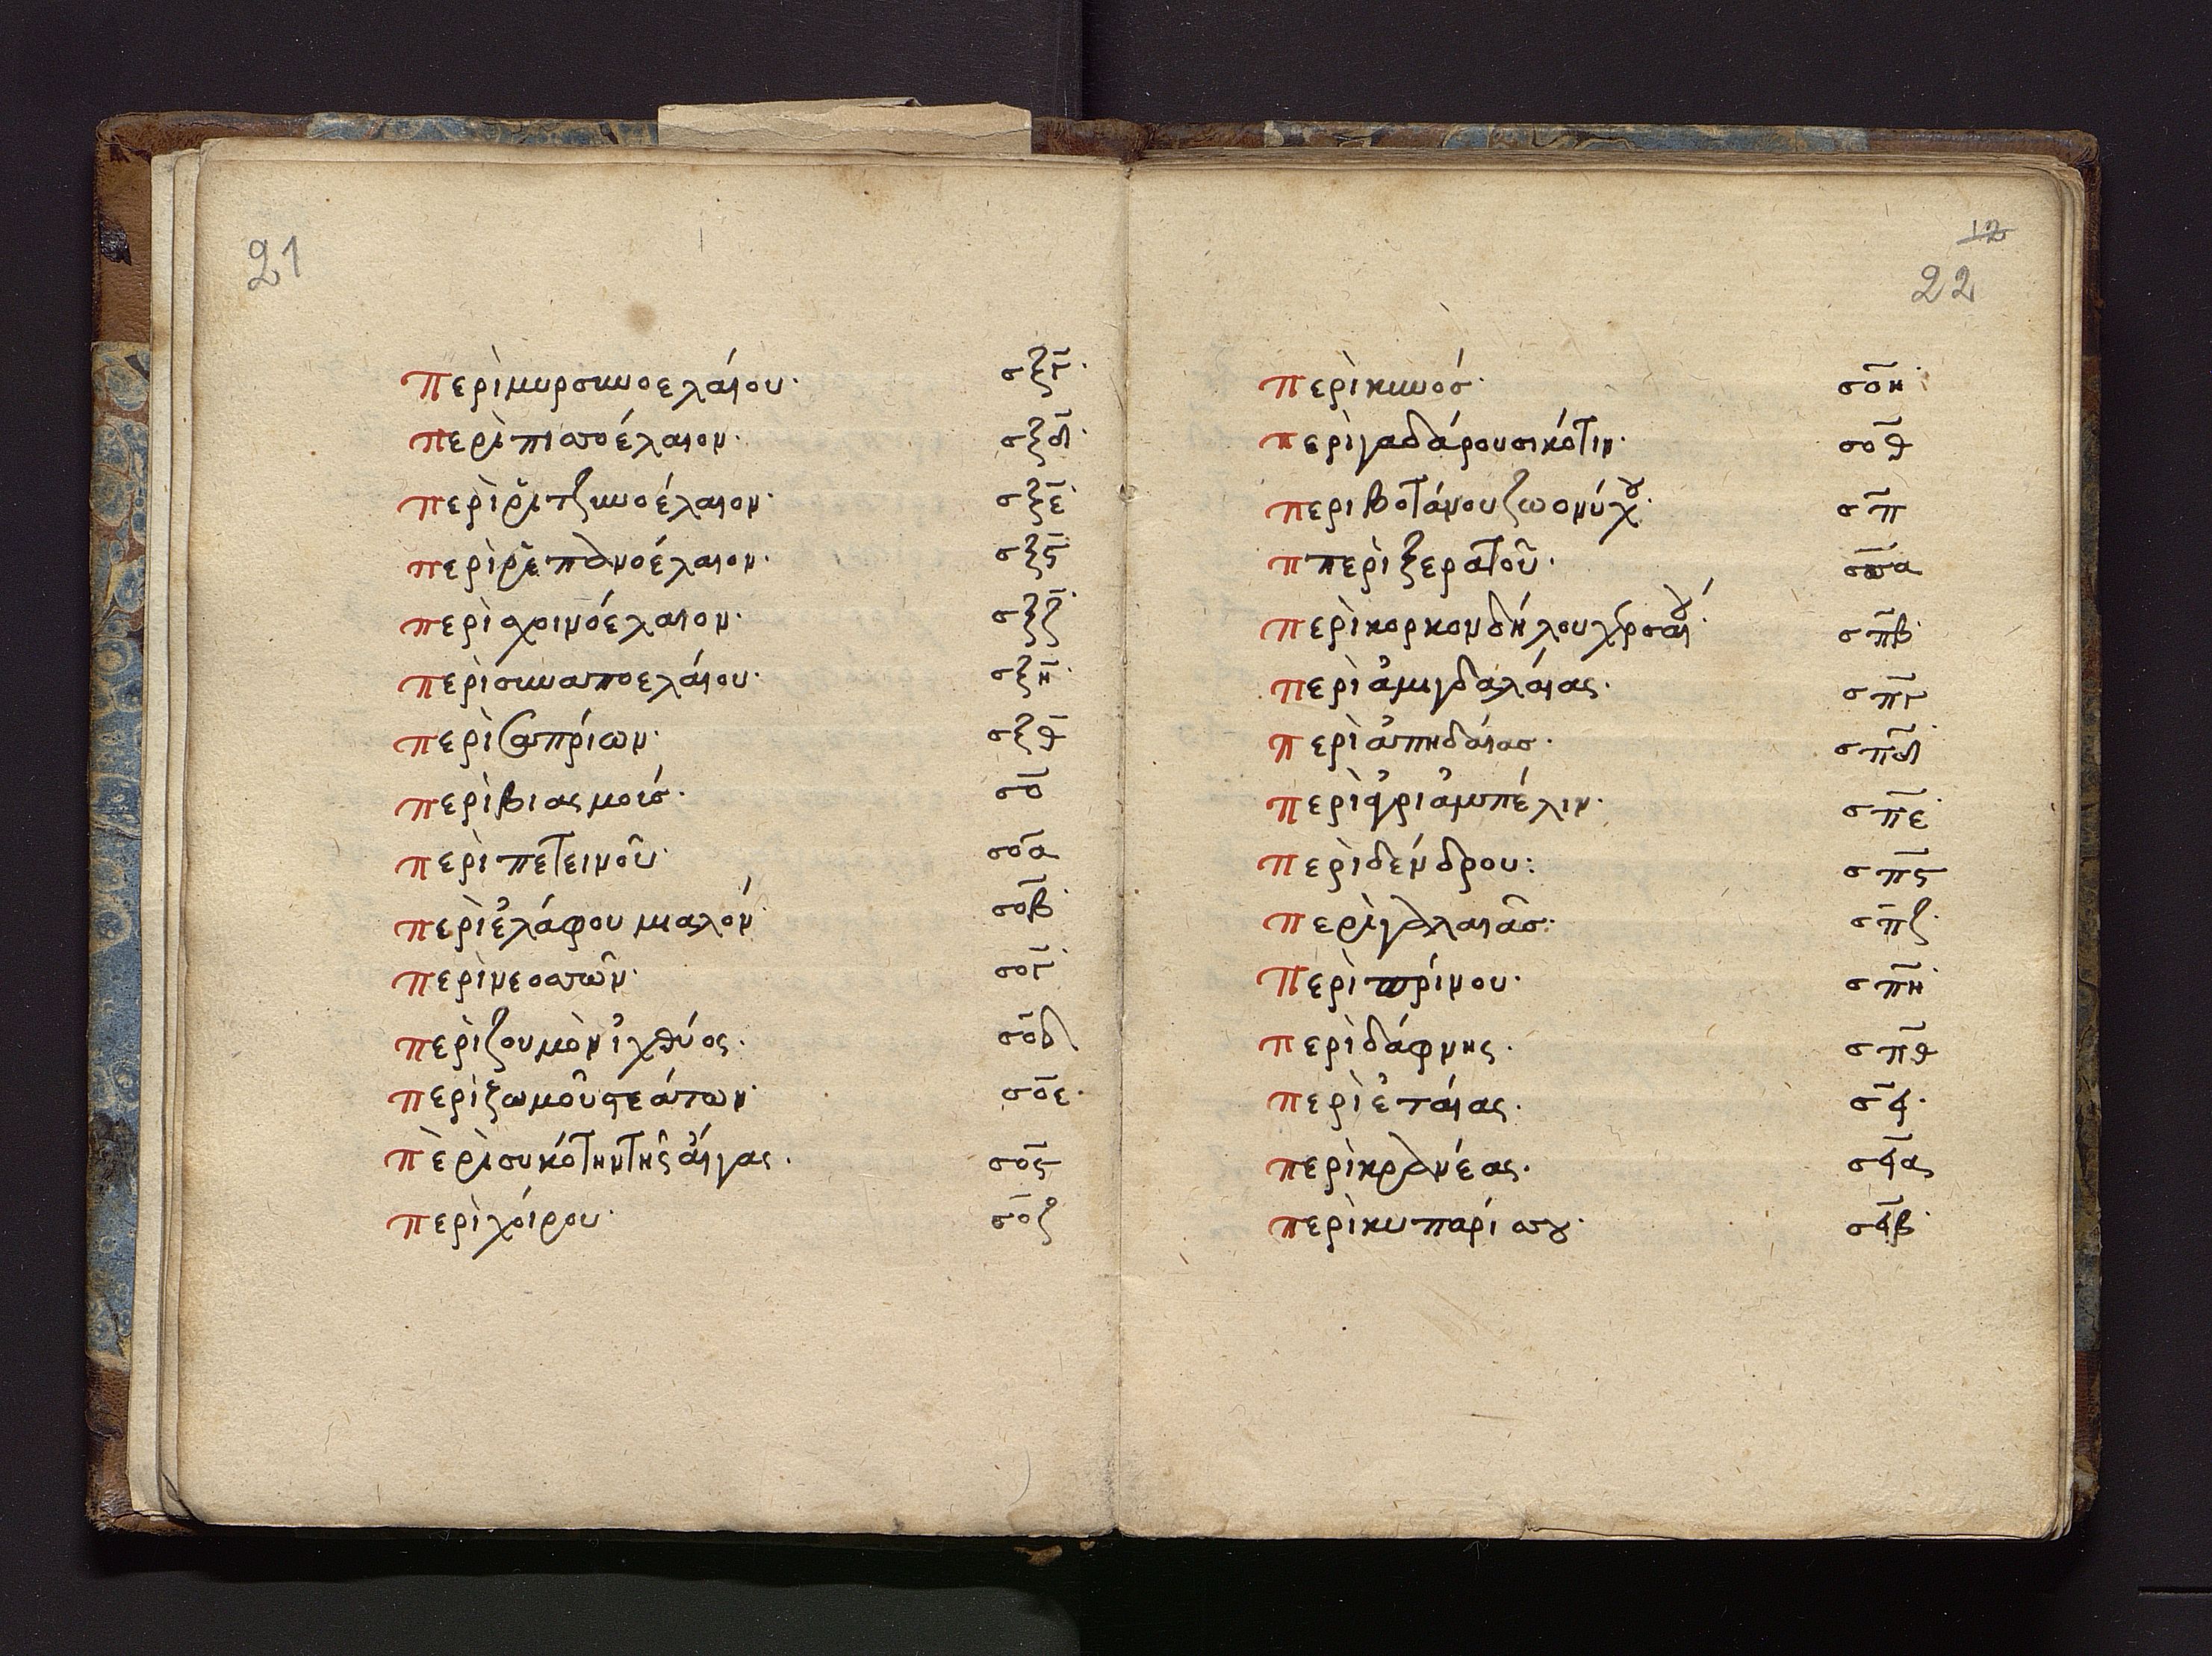 21
περὶ μυρσηνοελαίου· σξγ·
περὶ πισσοέλαιον· σξδ·
περὶ ῥιτζηνοέλαιον· σξε·
περὶ ῥεπανοέλαιον· σξς
περὶ σχοινόέλαιον· σξζ·
περὶ σηναπποελαίου· σξη·
περὶ ὀσπρίων· σξθ
περὶ βιας μοισ· σο
περὶ πετεινοῦ· σοα
περὶ ἐλάφου μιαλόν σοβ·
περὶ νεοσσῶν· σογ·
περὶ ζουμὸν ἰχθύος· σοδ
περὶ ζωμοῦ στεάτων· σοε·
πὲρὶ συκότην τῆς αἴγας· σος
περὶ χοίρου· σοζ
12
22
περὶ κυνόσ· σοη·
περὶ γαδάρου σικότιν· σοθ
περι βοτάνου ζωονύχου· σπ
π περὶ ξερατοῦ· σπα
περὶ κορκονδήλου χερσαίου· σπβ·
περὶ ἀμιγδαλαίας· σπγ
περὶ ἀπηδαίασ· σπδ
περὶ ἀγριἀμπέλιν· σπε·
περὶ δένδρου: σπς
περὶ γαλαιᾶσ: σπζ·
περὶ πρίνου· σπη·
περὶ δάφνης· σπθ
περὶ ἐταίας· σϟ·
περὶ κρανέας· σϟα
περὶ κυπαρίσσου· σϟβ·